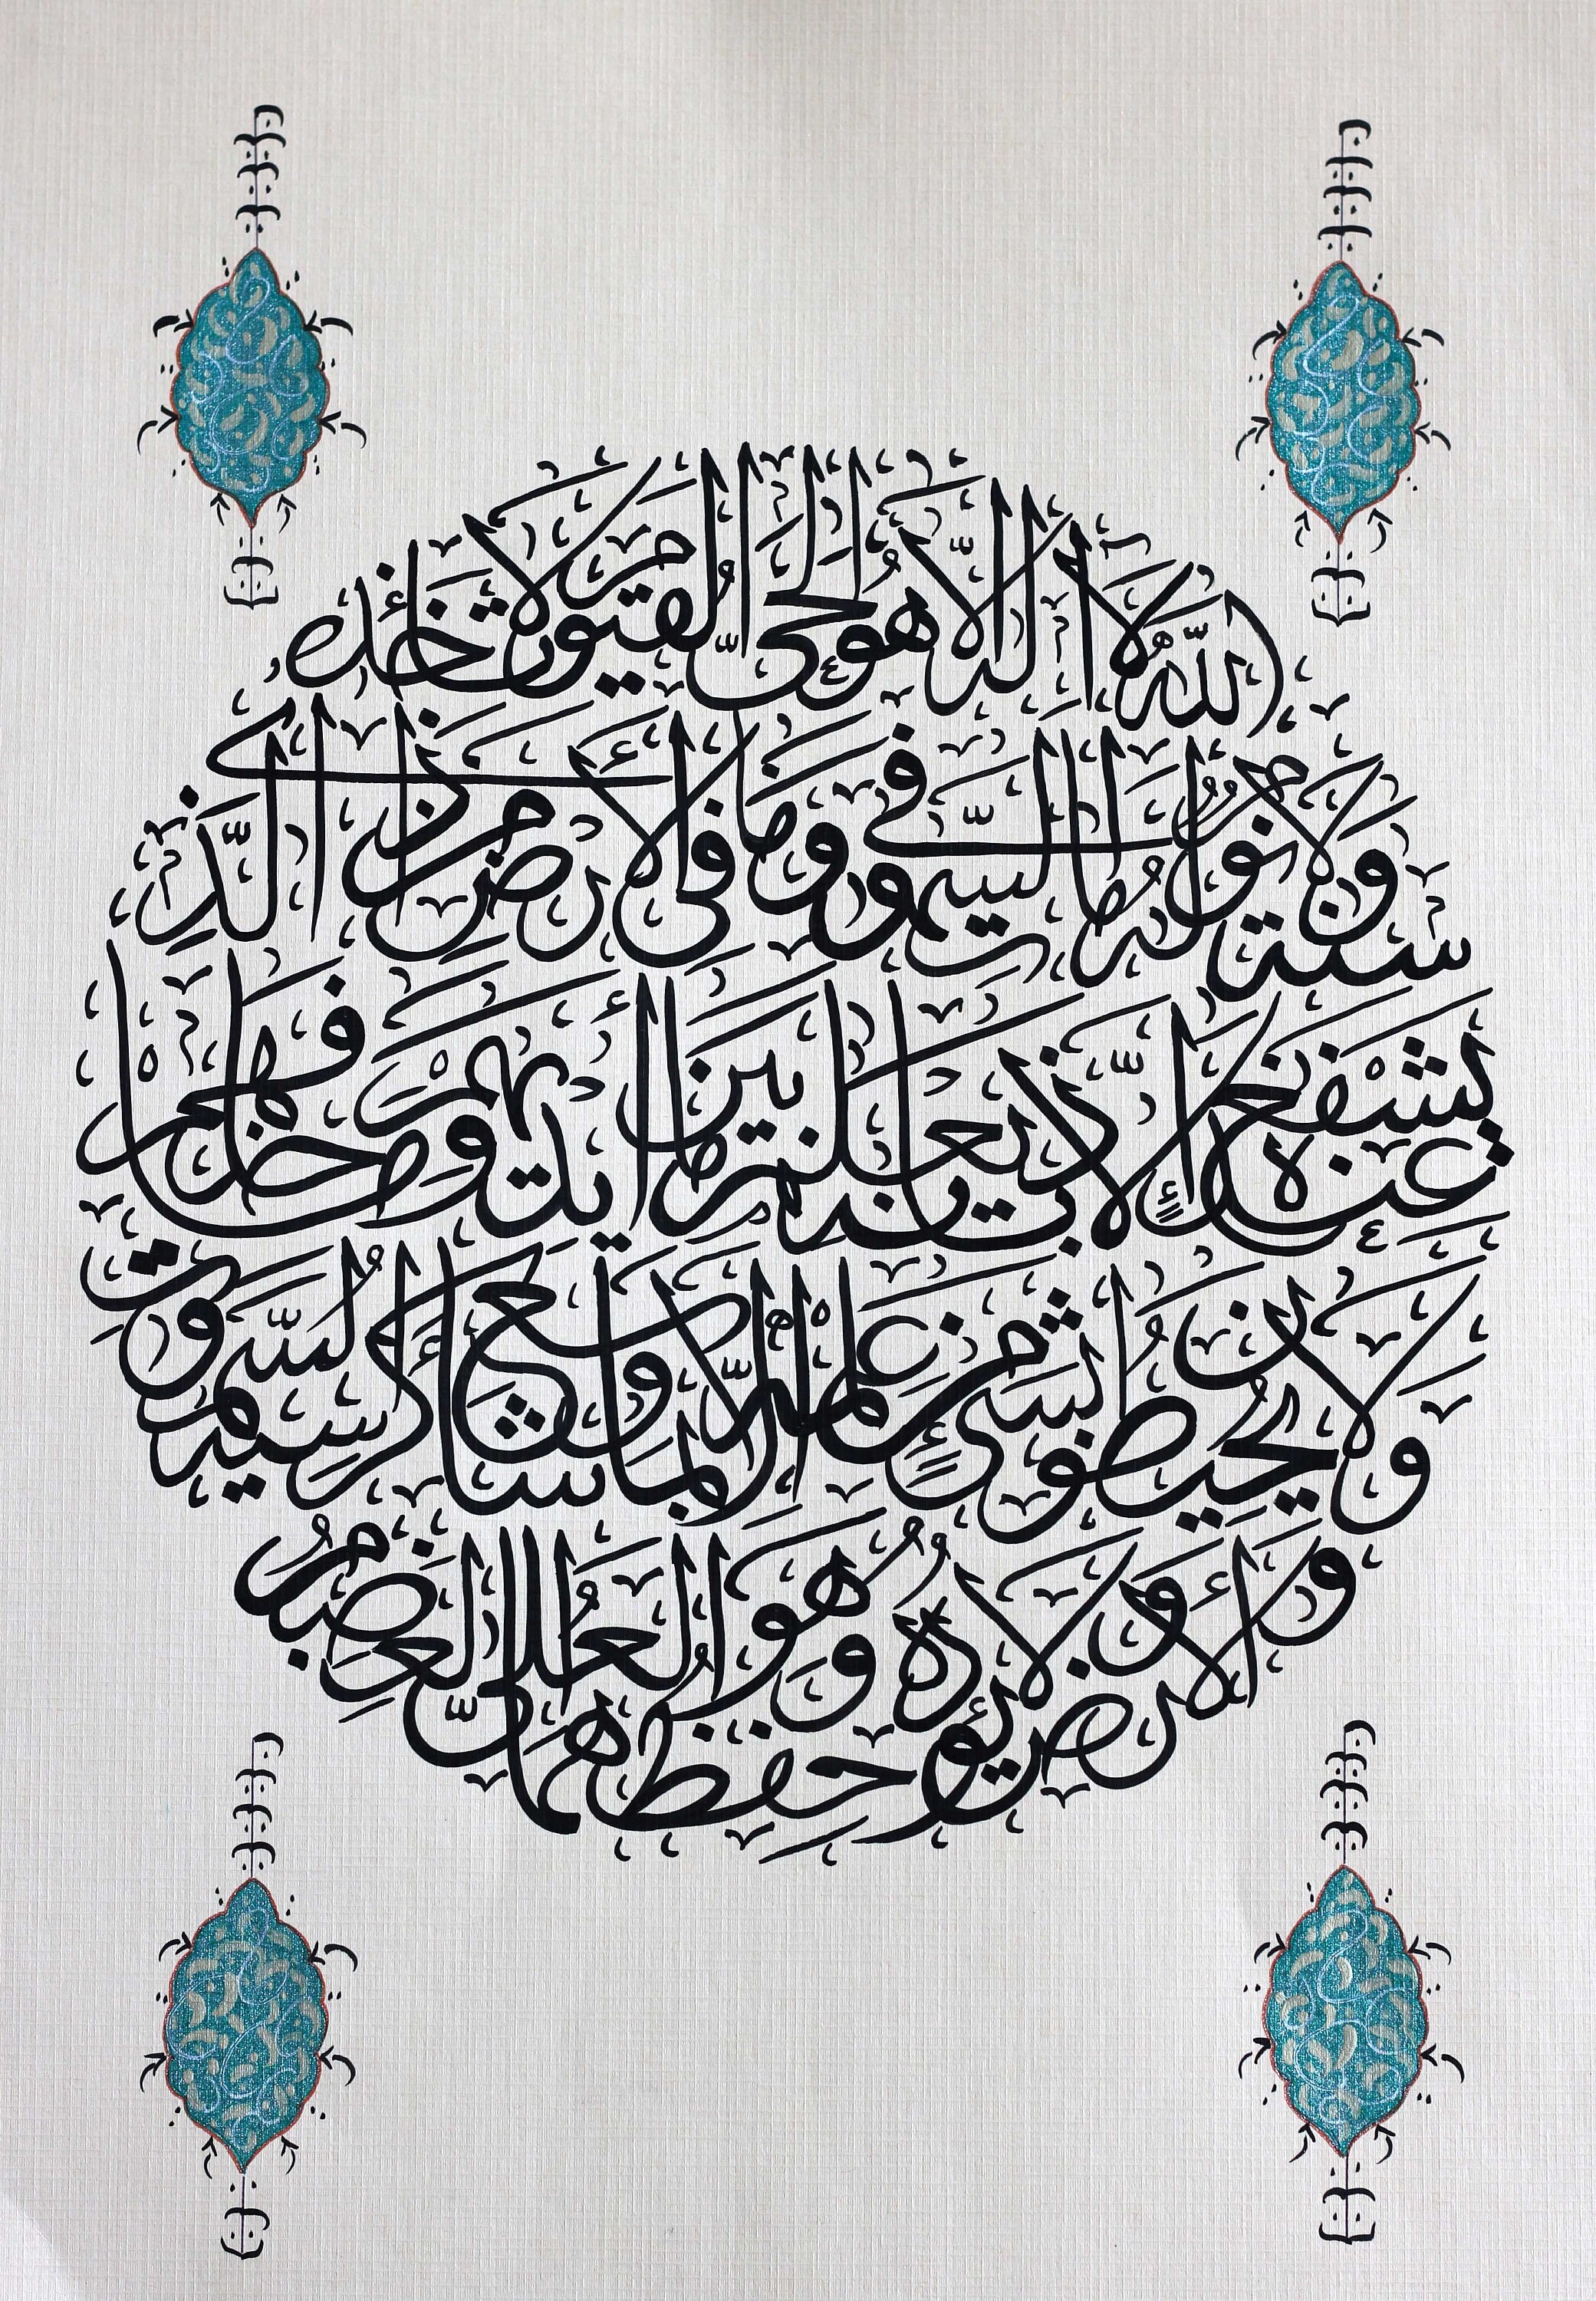 الله لا اله الا هو الحي القيوم لا تأخذه
سنة ولا نوم له ما في السموت وما في الارض من ذا الذي
يشفع عنده الا باذنه يعلم ما بين ايديهم وما خلفهم
ولا يحيطون بشيء من علمه الا بما شاء وسع كرسيه السموت
والارض ولا يؤده حفظهما وهو العلي العظيم